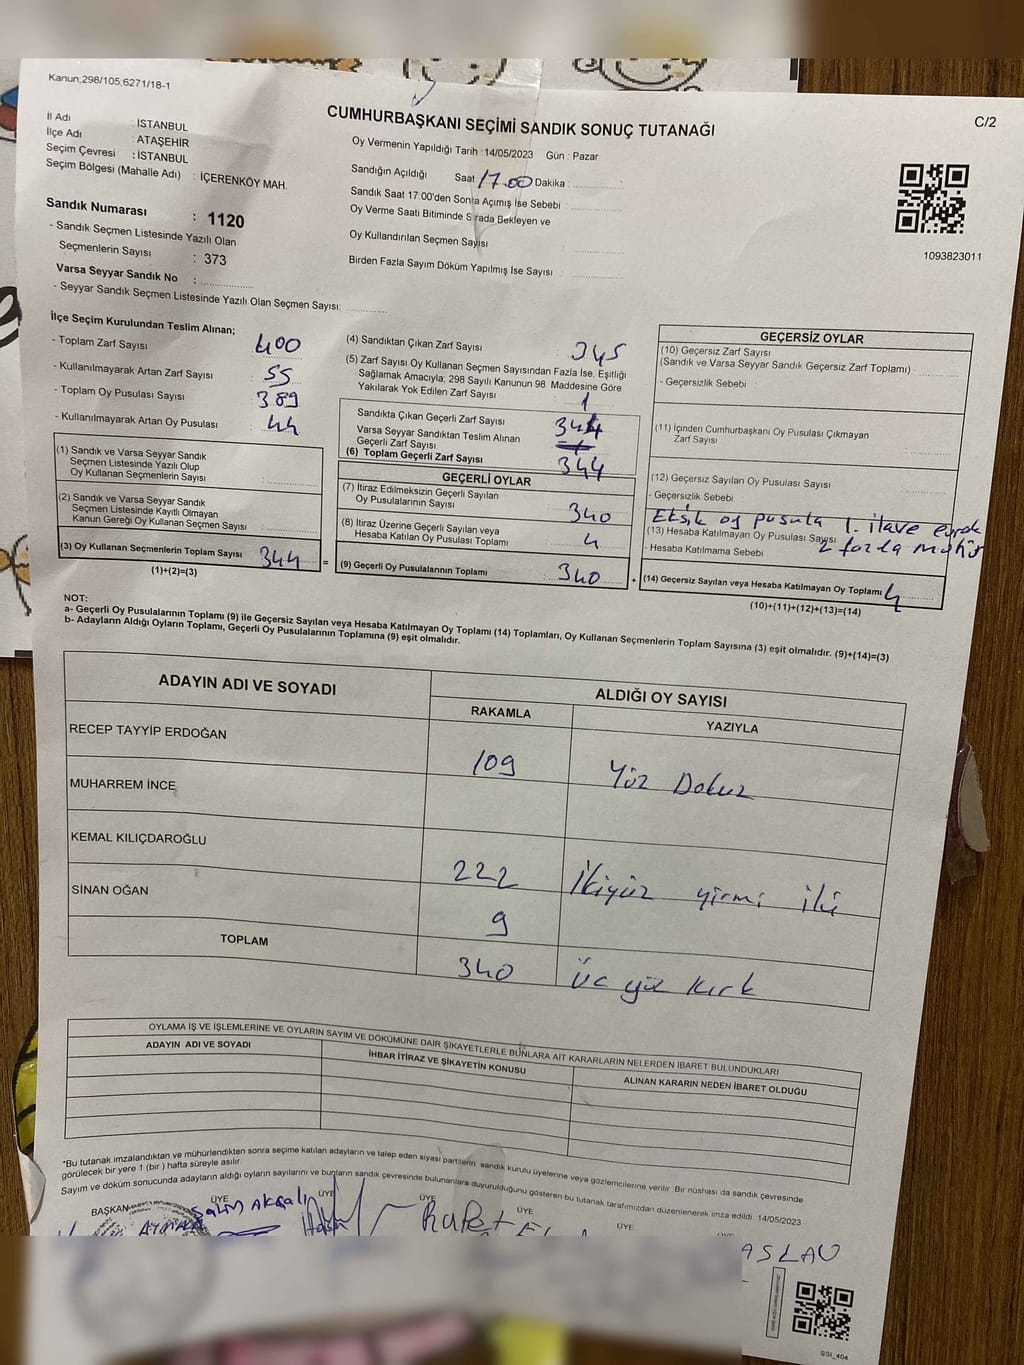 Kanun,298/105,6271/18-1
C/2
CUMHURBAŞKANI SEÇİMİ SANDIK SONUÇ TUTANAĞI
İl Adı : İSTANBUL
İlçe Adı : ATAŞEHİR
Seçim Çevresi : İSTANBUL
Seçim Bölgesi (Mahalle Adı) : İÇERENKÖY MAH.
Sandık Numarası : 1120
- Sandık Seçmen Listesinde Yazılı Olan
Seçmenlerin Sayısı : 373
Varsa Seyyar Sandık No :
- Seyyar Sandık Seçmen Listesinde Yazılı Olan Seçmen Sayısı:
Oy Vermenin Yapıldığı Tarih : 14/05/2023 Gün : Pazar
Sandığın Açıldığı Saat 17.00 Dakika :
Sandık Saat 17:00'den Sonra Açımış İse Sebebi :
Oy Verme Saati Bitiminde Sırada Bekleyen ve
Oy Kullandırılan Seçmen Sayısı :
Birden Fazla Sayım Döküm Yapılmış İse Sayısı :
1093823011
İlçe Seçim Kurulundan Teslim Alınan;
- Toplam Zarf Sayısı : 400
- Kullanılmayarak Artan Zarf Sayısı : 55
- Toplam Oy Pusulası Sayısı : 389
- Kullanılmayarak Artan Oy Pusulası : 44
(1) Sandık ve Varsa Seyyar Sandık
Seçmen Listesinde Yazılı Olup
Oy Kullanan Seçmenlerin Sayısı :
(2) Sandık ve Varsa Seyyar Sandık
Seçmen Listesinde Kayıtlı Olmayan
Kanun Gereği Oy Kullanan Seçmen Sayısı :
(3) Oy Kullanan Seçmenlerin Toplam Sayısı : 344 =
(1)+(2)=(3)
(4) Sandıktan Çıkan Zarf Sayısı : 345
(5) Zarf Sayısı Oy Kullanan Seçmen Sayısından Fazla İse, Eşitliği
Sağlamak Amacıyla; 298 Sayılı Kanunun 98. Maddesine Göre
Yakılarak Yok Edilen Zarf Sayısı : 1
Sandıkta Çıkan Geçerli Zarf Sayısı : 344
Varsa Seyyar Sandıktan Teslim Alınan
Geçerli Zarf Sayısı :
(6) Toplam Geçerli Zarf Sayısı : 344
GEÇERLİ OYLAR
(7) İtiraz Edilmeksizin Geçerli Sayılan
Oy Pusulalarının Sayısı : 340
(8) İtiraz Üzerine Geçerli Sayılan veya
Hesaba Katılan Oy Pusulası Toplamı : 4
(9) Geçerli Oy Pusulalarının Toplamı : 340 +
GEÇERSİZ OYLAR
(10) Geçersiz Zarf Sayısı
(Sandık ve Varsa Seyyar Sandık Geçersiz Zarf Toplamı) :
- Geçersizlik Sebebi
(11) İçinden Cumhurbaşkanı Oy Pusulası Çıkmayan
Zarf Sayısı :
(12) Geçersiz Sayılan Oy Pusulası Sayısı :
- Geçersizlik Sebebi
Eksik oy pusula 1. ilave evrak
(13) Hesaba Katılmayan Oy Pusulası Sayısı
2 fazla mühür
- Hesaba Katılmama Sebebi
(14) Geçersiz Sayılan veya Hesaba Katılmayan Oy Toplamı : 4
(10)+(11)+(12)+(13)=(14)
NOT:
a- Geçerli Oy Pusulalarının Toplamı (9) ile Geçersiz Sayılan veya Hesaba Katılmayan Oy Toplamı (14) Toplamları, Oy Kullanan Seçmenlerin Toplam Sayısına (3) eşit olmalıdır. (9)+(14)=(3)
b- Adayların Aldığı Oyların Toplamı, Geçerli Oy Pusulalarının Toplamına (9) eşit olmalıdır.
ADAYIN ADI VE SOYADI ALDIĞI OY SAYISI
RAKAMLA YAZIYLA
RECEP TAYYİP ERDOĞAN 109 Yüz Dokuz
MUHARREM İNCE
KEMAL KILIÇDAROĞLU 222 İkiyüz yirmi iki
SİNAN OĞAN 9
TOPLAM 340 Üç yüz kırk
OYLAMA İŞ VE İŞLEMLERİNE VE OYLARIN SAYIM VE DÖKÜMÜNE DAİR ŞİKAYETLERLE BUNLARA AİT KARARLARIN NELERDEN İBARET BULUNDUKLARI
ADAYIN ADI VE SOYADI İHBAR İTİRAZ VE ŞİKAYETİN KONUSU ALINAN KARARIN NEDEN İBARET OLDUĞU
*Bu tutanak imzalandıktan ve mühürlendikten sonra seçime katılan adayların ve talep eden siyasi partilerin sandık kurulu üyelerine veya gözlemcilerine verilir. Bir nüshası da sandık çevresinde
görülecek bir yere 1 (bir) hafta süreyle asılır.
Sayım ve döküm sonucunda adayların aldığı oyların sayılarını ve bunların sandık çevresinde bulunanlara duyurulduğunu gösteren bu tutanak tarafımızdan düzenlenerek imza edildi. 14/05/2023
BAŞKAN ÜYE ÜYE ÜYE ÜYE ÜYE
ASLAN
GSI_404